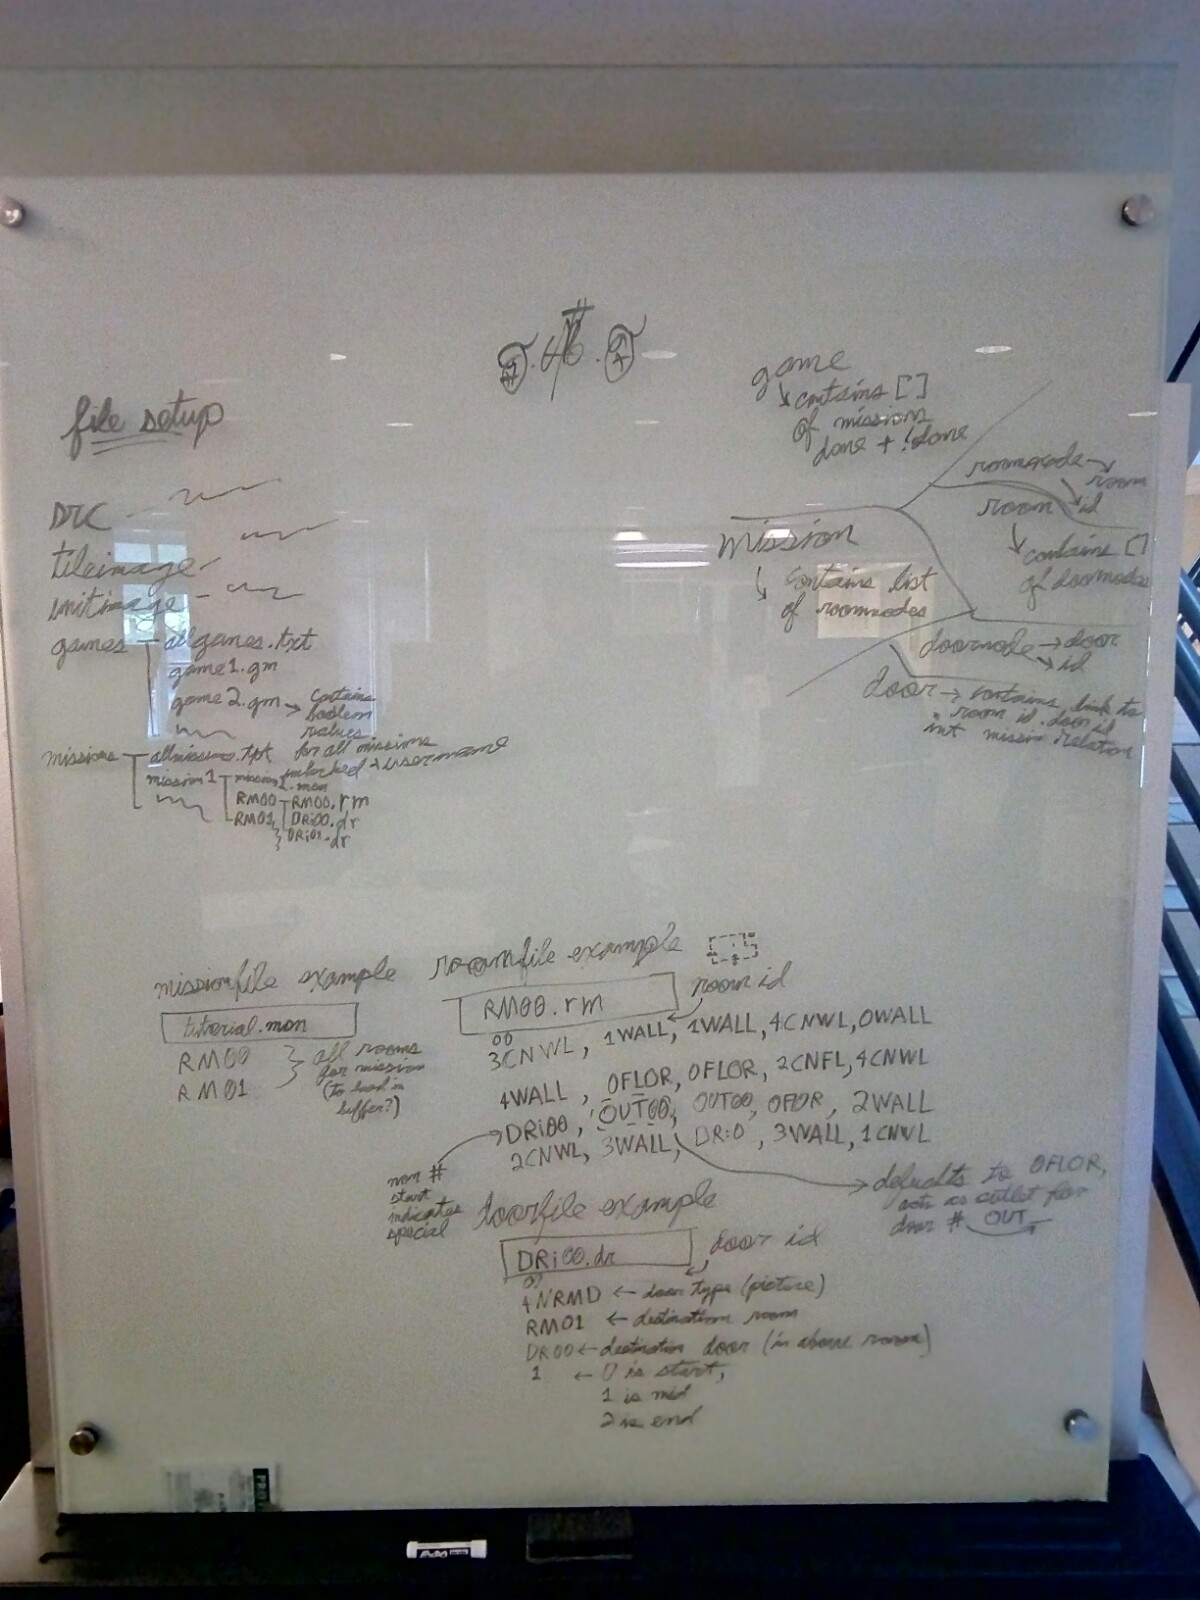 file setup
tileimage -
unitimage -
games
allgames.txt
game1.gm
game2.gm → contains
boolean
values
for all missions
unlocked + username
missions
allmissions.txt
mission1
RM00
RM00.rm
RM01
DRi00.dr
DRi01.dr
game
contains [ ]
of missions
done + !done
mission
contains list
of roomnodes
roomnode → room
id
room
contains []
of doornodes
doornode → door
id
door → contains link to
room id door id
int mission relation
missionfile example
tutorial.msn
RM00
RM01
all rooms
for mission
(to load in
buffer?)
roomfile example
RM00.rm
room id
00
3CNWL, 1WALL, 1WALL, 4CNWL, 0WALL
4WALL, 0FLOR, 0FLOR, 2CNFL, 4CNWL
DRi00, OUT00, OUT00, 0FLOR, 2WALL
2CNWL, 3WALL, DRi0, 3WALL, 1CNWL
non #
start
indicates
special
defaults to 0FLOR,
acts as outlet for
door # OUT
doorfile example
DRi00.dr
door id
00
4NRMD ← door type (picture)
RM01 ← destination room
DR00 ← destination door (in above room)
1 ← 0 is start,
1 is mid
2 is end